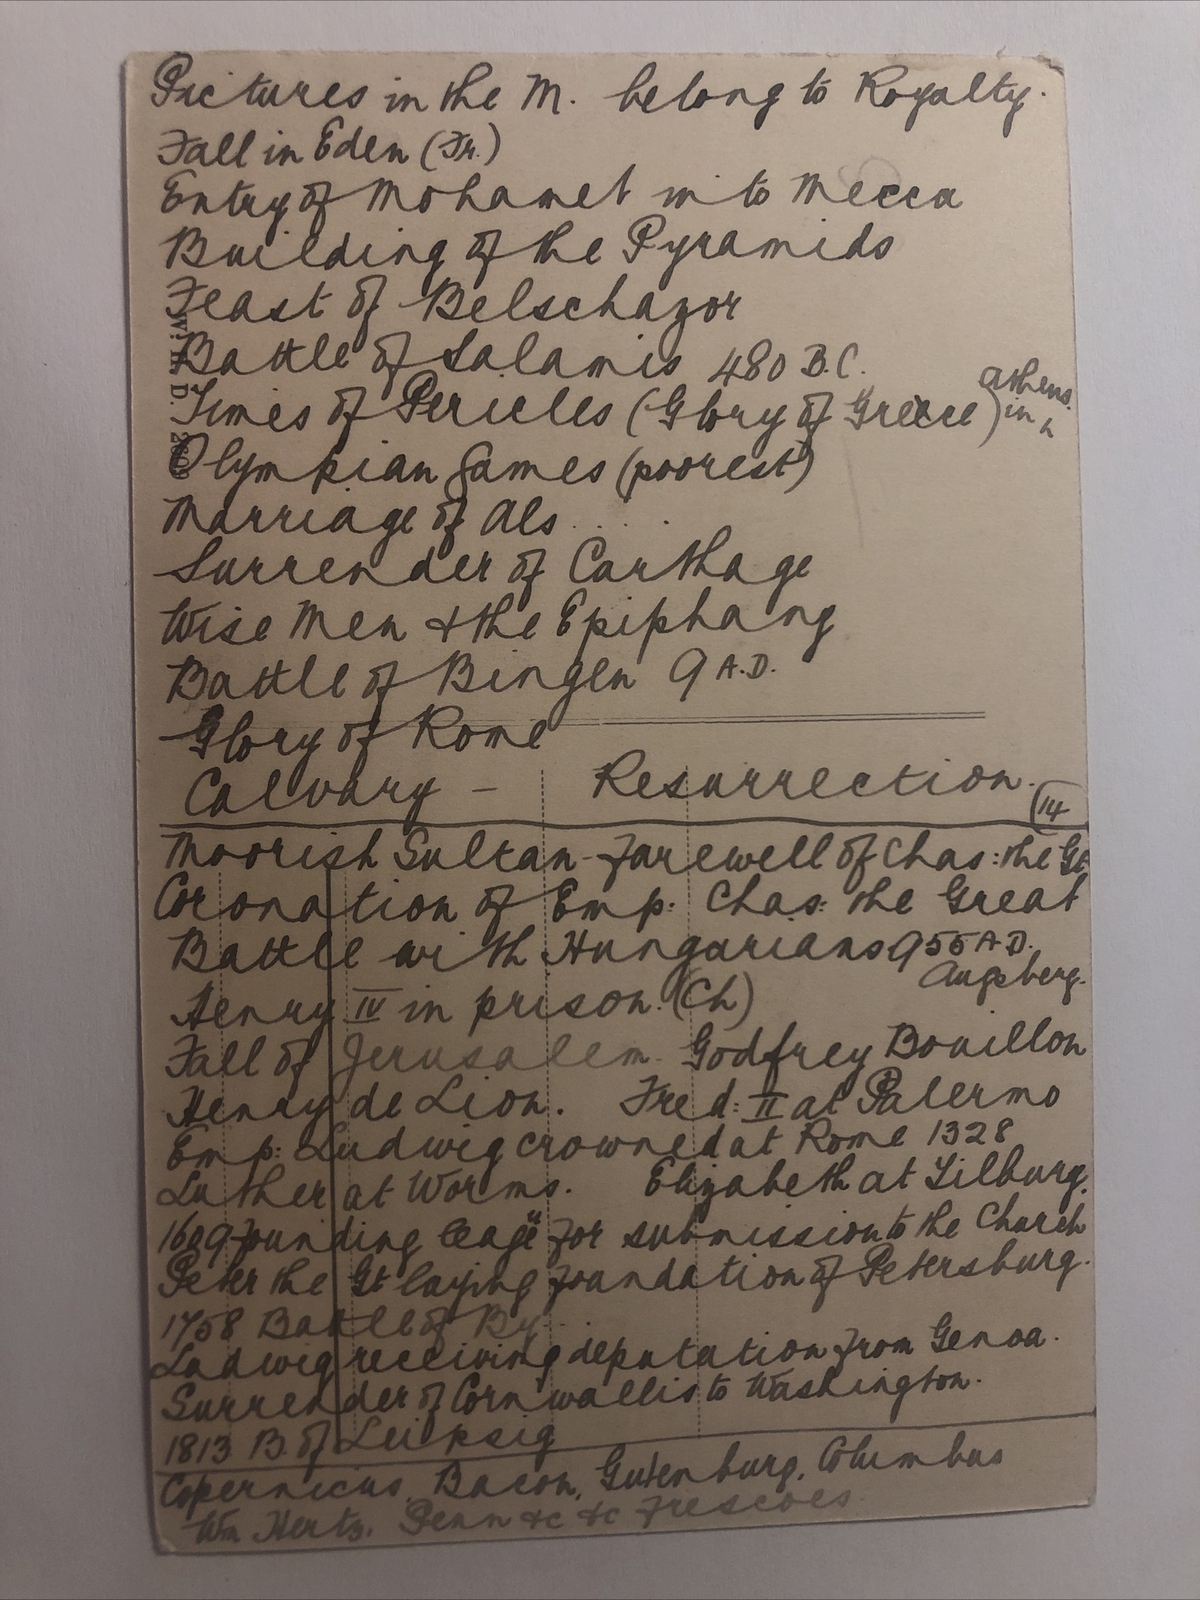 Pictures in the M. belong to Royalty.
Fall in Eden (Fr.)
Entry of Mohamet into Mecca
Building of the Pyramids
Feast of Belschazor
Battle of Salamis 480 B.C.
Times of Pericles (Glory of Greece) in Athens.
Olympian Games (poorest)
Marriage of Als ....
Surrender of Carthage
Wise Men & the Epiphany
Battle of Bingen 9 A.D.
Glory of Rome
Calvary - Resurrection.
14
Moorish Sultan - farewell of Chas: the Gt
Coronation of Emp: Chas: the Great
Battle with Hungarians 955 A.D.
Augsberg.
Henry IV in prison. (Ch)
Fall of Jerusalem - Godfrey Bouillon
Henry de Lion. Fred: II at Palermo
Emp: Ludwig crowned at Rome 1328
Luther at Worms. Elizabeth at Tilburg.
1609 founding leage for submission to the Church
Peter the Gt laying foundation of Petersburg.
1758 Battle of By...
Ludwig receiving deputation from Genoa.
Surrender of Cornwallis to Washington.
1813 B. of Leipsig
Copernicus, Bacon, Gutenburg, Columbus
Wm Hertz, Penn &c &c Frescoes.
W. H. D. 2809